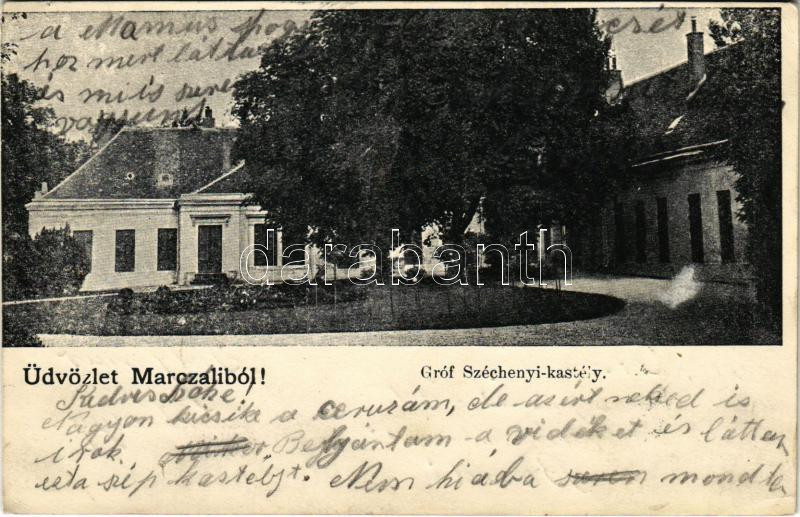 a Mamus
hoz mert
és mi is
vagyunk
darabanth
Üdvözlet Marczaliból!
Gróf Széchenyi-kastély.
Nagyon kicsike a ceruzám, de azért neked is
irok. Bejártam a vidéket és láttam
ezt a szép kastélyt. Nem hiába mondta